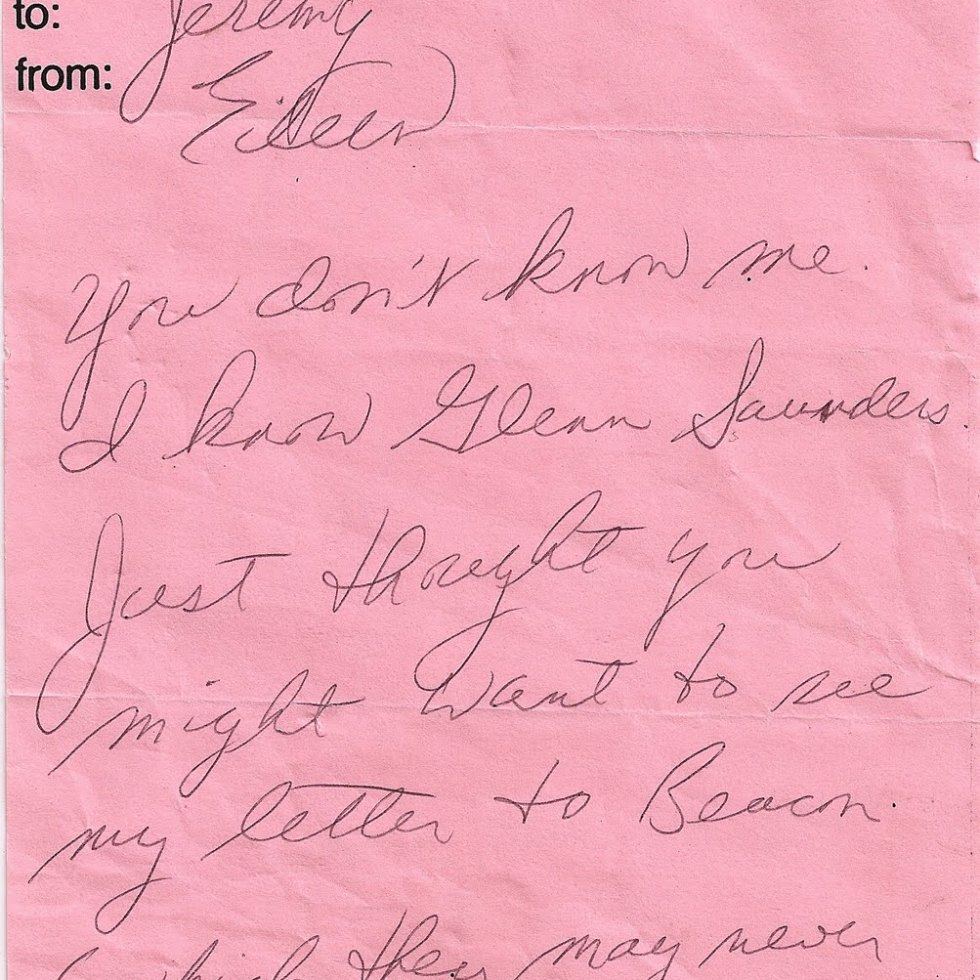 to: Jeremy
from: Eileen
You don't know me.
I know Glenn Saunders.
Just thought you
might want to see
my letter to Beacon.
which they may never